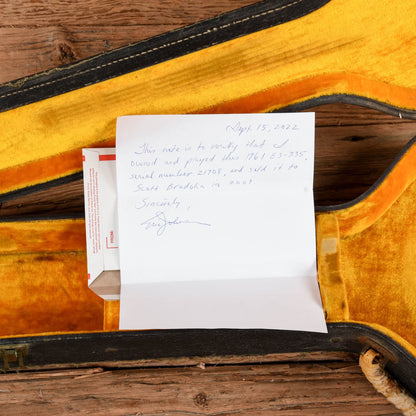 Sept. 15, 2022
This note is to verify that I
owned and played this 1961 ES-335,
serial number 21708, and sold it to
Scott in
Sincerely,
Eric Johnson
FROM: